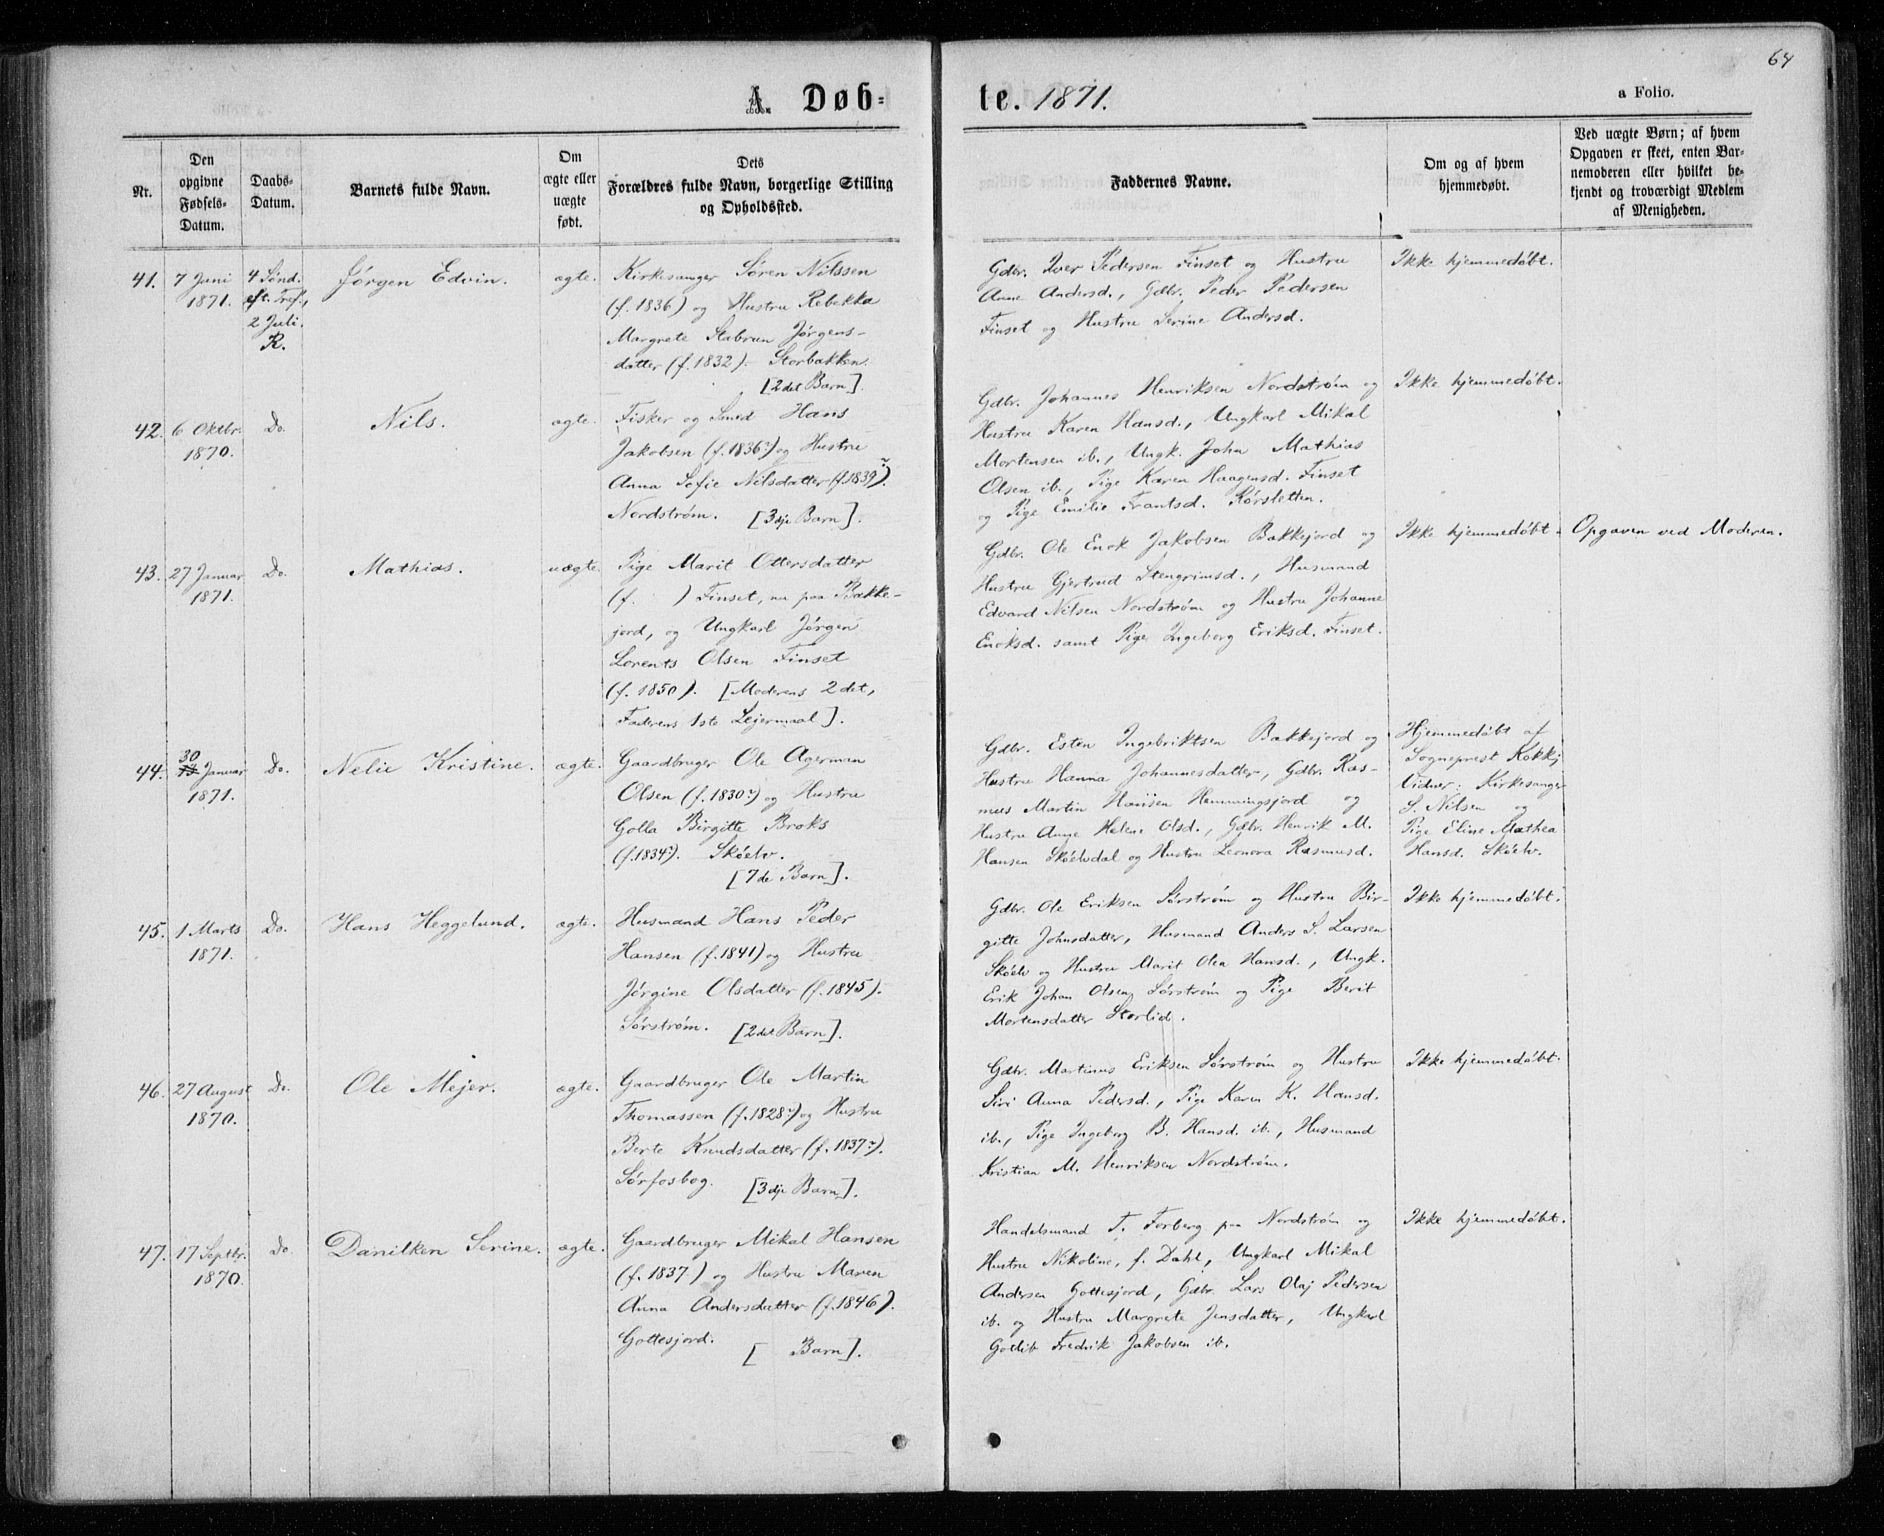 64
A. Døb-
te. 1871.
a Folio.
Nr.
Den
opgivne
Fødsels-
Datum.
Daabs-
Datum.
Barnets fulde Navn.
Om
ægte eller
uægte
født.
Dets
Forældres fulde Navn, borgerlige Stilling
og Opholdssted.
Faddernes Navne.
Om og af hvem
hjemmedøbt.
Ved uægte Børn; af hvem
Opgaven er skeet, enten Bar-
nemoderen eller hvilket be-
kjendt og troværdigt Medlem
af Menigheden.
41.
7 Juni
1871.
4 Sønd.
eft. Tref.,
2 Juli.
K.
Jørgen Edvin.
ægte.
Kirkesanger Søren Nilssen
(f. 1836) og Hustru Rebekka
Margrete Stabrun Jørgens-
datter (f. 1832). Storbakken.
[2det Barn].
Gdbr. Iver Pedersen Finset og Hustru
Anne Andersd., Gdbr. Peder Pedersen
Finset og Hustru Serine Andersd.
Ikke hjemmedøbt.
42.
6 Oktbr.
1870.
Do.
Nils.
ægte.
Fisker og Smed Hans
Jakobsen (f. 1836?) og Hustru
Anna Sofie Nilsdatter (f. 1839?).
Nordstrøm. [3dje Barn].
Gdbr. Johannes Henriksen Nordstrøm og
Hustru Karen Hansd., Ungkarl Mikal
Mortensen ib., Ungk. John Mathias
Olsen ib., Pige Karen Haagensd. Finset
og Pige Emilie Frantsd. Rørsletten.
Ikke hjemmedøbt.
43.
27 Januar
1871.
Do.
Mathias.
uægte.
Pige Marit Ottersdatter
(f. ) Finset, nu paa Bakke-
jord, og Ungkarl Jørgen
Lorents Olsen Finset
(f. 1850). [Moderens 2det,
Faderens 1ste Lejermaal].
Gdbr. Ole Enok Jakobsen Bakkejord og
Hustru Gjertrud Stengrimsd., Husmand
Edvard Nilsen Nordstrøm og Hustru Johanne
Enoksd. samt Pige Ingeborg Eriksd. Finset.
Ikke hjemmedøbt.
Opgaven ved Moderen.
44.
30
Januar
1871.
Do.
Nelie Kristine.
ægte.
Gaardbruger Ole Agerman
Olsen (f. 1830?) og Hustru
Golla Birgitte Broks
(f. 1834?). Skøelv.
[7de Barn].
Gdbr. Esten Ingebriktsen Bakkejord og
Hustru Hanna Johannesdatter, Gdbr. Ras-
mus Martin Hansen Hemmingsjord og
Hustru Anne Helene Olsd., Gdbr. Henrik M.
Hansen Skøelvdal og Hustru Leonora Rasmusd.
Hjemmedøbt af
Sogneprest Kokk;
Vidner: Kirkesanger
S. Nilsen og
Pige Eline Mathea
Hansd. Skøelv.
45.
1 Marts
1871.
Do.
Hans Heggelund.
ægte.
Husmand Hans Peder
Hansen (f. 1841) og Hustru
Jørgine Olsdatter (f. 1845).
Sørstrøm. [2det Barn].
Gdbr. Ole Eriksen Sørstrøm og Hustru Bir-
gitte Johnsdatter, Husmand Anders S. Larsen
Skøelv og Hustru Marit Olea Hansd., Ungk.
Erik Johan Olsen Sørstrøm og Pige Berit
Mortensdatter Storlid.
Ikke hjemmedøbt.
46.
27 August
1870.
Do.
Ole Mejer.
ægte.
Gaardbruger Ole Martin
Thomassen (f. 1828?) og Hustru
Berte Knudsdatter (f. 1837?).
Sørfosbog. [3dje Barn].
Gdbr. Martinus Eriksen Sørstrøm og Hustru
Siri Anna Pedersd., Pige Karen K. Hansd.
ib., Pige Ingeborg B. Hansd. ib., Husmand
Kristian M. Henriksen Nordstrøm.
Ikke hjemmedøbt.
47.
17 Septbr.
1870.
Do.
Danilken Serine.
ægte.
Gaardbruger Mikal Hansen
(f. 1837) og Hustru Maren
Anna Andersdatter (f. 1846).
Gottesjord. [ Barn].
Handelsmand T. Forberg paa Nordstrøm og
Hustru Nikoline, f. Dahl, Ungkarl Mikal
Andersen Gottesjord, Gdbr. Lars Olaj Pedersen
ib. og Hustru Margrete Jensdatter, Ungkarl
Gotlib Fredrik Jakobsen ib.
Ikke hjemmedøbt.